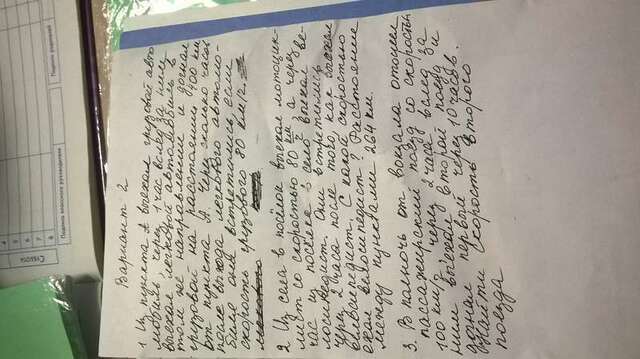 Вариант 2
1 Из пункта А выехал грузовой авто
мобиль, через 1 час вслед за ним
выехал легковой автомобиль в
том же направлении и догнал
грузовой на расстоянии 400 км
от пункта А. Через сколько часов
после выхода легкового автомо-
биля они встретились, если
скорость грузового 80 км/ч.
2 Из села в посёлок выехал мотоцик-
лист со скоростью 80 км/ч а через
час из поселка в село выехал ве-
лосипедист. Они встретились
через 2 часа после того, как выехал
велосипедист. С какой скоростью
ехал велосипедист? Расстояние
между пунктами 264 км.
3. В полночь от вокзала отошел
пассажирский поезд со скоростью
100 км/ч, через 2 часа вслед за
ним выехал второй поезд и
догнал первый через 10 часов.
Найти скорость второго
поезда
Подпись классного руководителя
Подпись родителей
Суббота
4
5
6
7
8